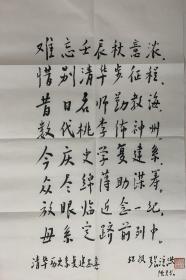 难忘壬辰秋意浓，
惜别清华步征程。
昔日名师勤教海
数代桃李佈神州
今庆史学复建系
众尽绵薄助谋筹
放眼临近金一纪
母系定跻前列中。
清华历史系复建志喜